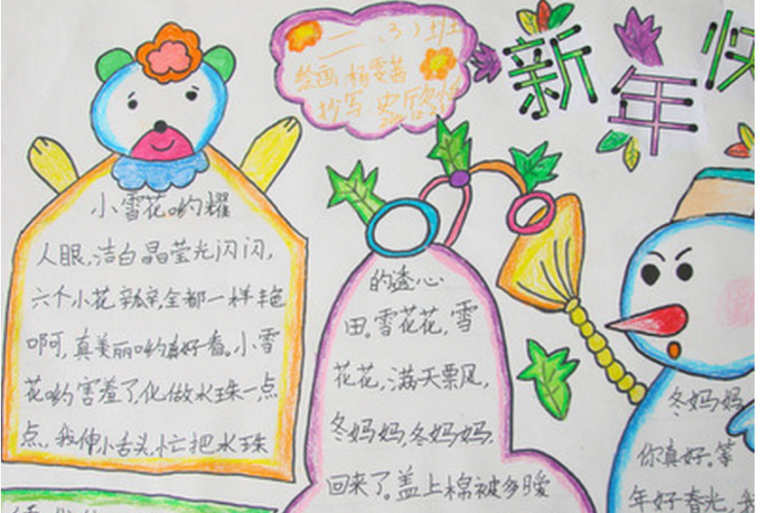 二(3)班
绘画 杨雯茜
抄写 史欣怡
新年快
小雪花哟耀
人眼,洁白晶莹光闪闪,
六个小花瓣,全都一样艳
啊呵,真美丽哟真好看。小雪
花哟害羞了,化做水珠一点
点,我伸小舌头,忙把水珠
的透心
田。雪花花,雪
花花,满天票风,
冬妈妈,冬妈妈,
回来了。盖上棉被多暖
冬妈妈
你真好。等
年好春光,我